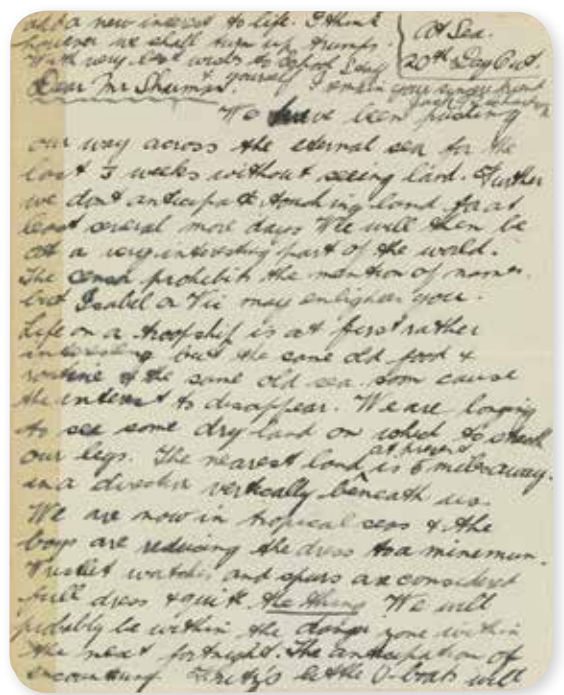 add a new interest to life. I think
however we shall turn up trumps.
With very best wishes to
& yourself I remain your sincere friend
At Sea.
20th Day Out.
Dear Mr Shumack.
We have been pushing
our way across the eternal sea for the
last 3 weeks without seeing land. Further
we don't anticipate touching land for at
least several more days. We will then be
at a very interesting part of the world.
The censor prohibits the mention of names.
but Isabel or Vic may enlighten you.
Life on a troopship is at first rather
interesting but the same old food &
routine & the same old sea soon cause
the interest to disappear. We are longing
to see some dry land on which to stretch
our legs. The nearest land at present is 6 miles away.
in a direction vertically beneath us.
We are now in tropical seas & the
boys are reducing the dress to a minemun.
Wristlet watches and spurs are considered
full dress & quite the thing. We will
probably be within the danger zone within
the next fortnight. The anticipation of
encountering Fritz's little U-boats will